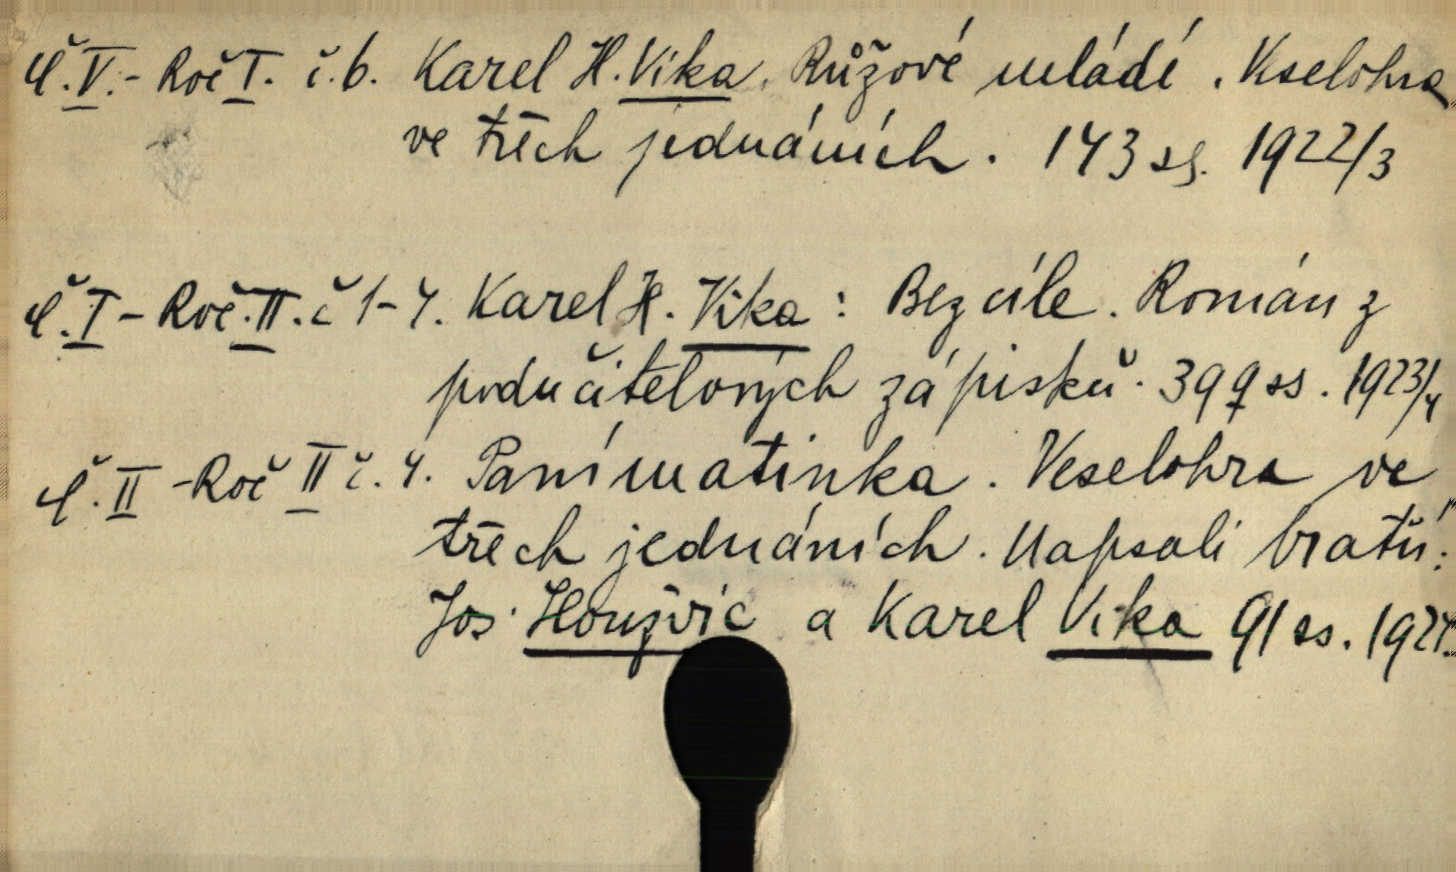 Č.V.- Roč I. č.6. Karel H. Vika. Růžové mládí. Veselohra
ve třech jednáních. 143 ss. 1922/3
Č.I - Roč. II. č 1-4. Karel H. Vika: Bez cíle. Román z
podučitelových zápisků. 399 ss. 1923/4
Č.II - Roč II č.4. Panímatinka. Veselohra ve
třech jednáních. Napsali bratří:
Jos. Houžvic a Karel Vika 91 ss. 1924.